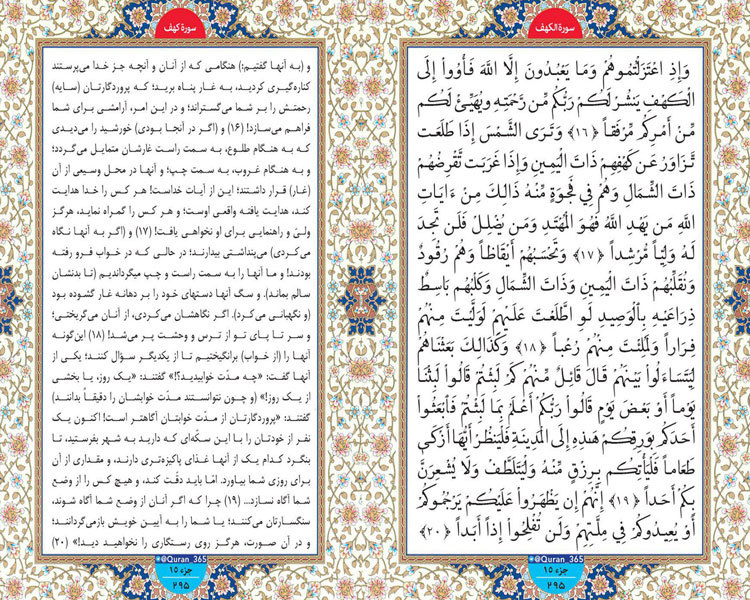 سورة الكهف
وَإِذِ اعْتَزَلْتُمُوهُمْ وَمَا يَعْبُدُونَ إِلَّا اللَّهَ فَأْوُوا إِلَى
الْكَهْفِ يَنْشُرْ لَكُمْ رَبُّكُمْ مِنْ رَحْمَتِهِ وَيُهَيِّئْ لَكُمْ
مِنْ أَمْرِكُمْ مِرْفَقاً ﴿١٦﴾ وَتَرَى الشَّمْسَ إِذَا طَلَعَتْ
تَزَاوَرُ عَنْ كَهْفِهِمْ ذَاتَ الْيَمِينِ وَإِذَا غَرَبَتْ تَقْرِضُهُمْ
ذَاتَ الشِّمَالِ وَهُمْ فِي فَجْوَةٍ مِنْهُ ذَالِكَ مِنْ ءَايَاتِ
اللَّهِ مَنْ يَهْدِ اللَّهُ فَهُوَ الْمُهْتَدِ وَمَنْ يُضْلِلْ فَلَنْ تَجِدَ
لَهُ وَلِيّاً مُرْشِداً ﴿١٧﴾ وَتَحْسَبُهُمْ أَيْقَاظاً وَهُمْ رُقُودٌ
وَنُقَلِّبُهُمْ ذَاتَ الْيَمِينِ وَذَاتَ الشِّمَالِ وَكَلْبُهُمْ بَاسِطٌ
ذِرَاعَيْهِ بِالْوَصِيدِ لَوِ اطَّلَعْتَ عَلَيْهِمْ لَوَلَّيْتَ مِنْهُمْ
فِرَاراً وَلَمُلِئْتَ مِنْهُمْ رُعْباً ﴿١٨﴾ وَكَذَالِكَ بَعَثْنَاهُمْ
لِيَتَسَاءَلُوا بَيْنَهُمْ قَالَ قَائِلٌ مِنْهُمْ كَمْ لَبِثْتُمْ قَالُوا لَبِثْنَا
يَوْماً أَوْ بَعْضَ يَوْمٍ قَالُوا رَبُّكُمْ أَعْلَمُ بِمَا لَبِثْتُمْ فَابْعَثُوا
أَحَدَكُمْ بِوَرِقِكُمْ هَذِهِ إِلَى الْمَدِينَةِ فَلْيَنْظُرْ أَيُّهَا أَزْكَى
طَعَاماً فَلْيَأْتِكُمْ بِرِزْقٍ مِنْهُ وَلْيَتَلَطَّفْ وَلَا يُشْعِرَنَّ
بِكُمْ أَحَداً ﴿١٩﴾ إِنَّهُمْ إِنْ يَظْهَرُوا عَلَيْكُمْ يَرْجُمُوكُمْ
أَوْ يُعِيدُوكُمْ فِي مِلَّتِهِمْ وَلَنْ تُفْلِحُوا إِذاً أَبَداً ﴿٢٠﴾
@Quran_365
جزء ۱۵
۲۹۵
سورهٔ کهف
و (به آنها گفتیم:) هنگامی که از آنان و آنچه جز خدا می‌پرستند
کناره‌گیری کردید، به غار پناه برید؛ که پروردگارتان (سایه)
رحمتش را بر شما می‌گستراند؛ و در این امر، آرامشی برای شما
فراهم می‌سازد! (۱۶) و (اگر در آنجا بودی) خورشید را می‌دیدی
که به هنگام طلوع، به سمت راست غارشان متمایل می‌گردد؛
و به هنگام غروب، به سمت چپ؛ و آنها در محل وسیعی از آن
(غار) قرار داشتند؛ این از آیات خداست! هر کس را خدا هدایت
کند، هدایت یافته واقعی اوست؛ و هر کس را گمراه نماید، هرگز
ولیّ و راهنمایی برای او نخواهی یافت! (۱۷) و (اگر به آنها نگاه
می‌کردی) می‌پنداشتی بیدارند؛ در حالی که در خواب فرو رفته
بودند! و ما آنها را به سمت راست و چپ میگرداندیم (تا بدنشان
سالم بماند). و سگ آنها دستهای خود را بر دهانه غار گشوده بود
(و نگهبانی می‌کرد). اگر نگاهشان می‌کردی، از آنان می‌گریختی؛
و سر تا پای تو از ترس و وحشت پر می‌شد! (۱۸) این‌گونه
آنها را (از خواب) برانگیختیم تا از یکدیگر سؤال کنند؛ یکی از
آنها گفت: «چه مدّت خوابیدید؟!» گفتند: «یک روز، یا بخشی
از یک روز!» (و چون نتوانستند مدّت خوابشان را دقیقاً بدانند)
گفتند: «پروردگارتان از مدّت خوابتان آگاهتر است! اکنون یک
نفر از خودتان را با این سکّه‌ای که دارید به شهر بفرستید، تا
بنگرد کدام یک از آنها غذای پاکیزه‌تری دارند، و مقداری از آن
برای روزی شما بیاورد. امّا باید دقّت کند، و هیچ کس را از وضع
شما آگاه نسازد... (۱۹) چرا که اگر آنان از وضع شما آگاه شوند،
سنگسارتان می‌کنند؛ یا شما را به آیین خویش بازمی‌گردانند؛
و در آن صورت، هرگز روی رستگاری را نخواهید دید!» (۲۰)
@Quran_365
جزء ۱۵
۲۹۵